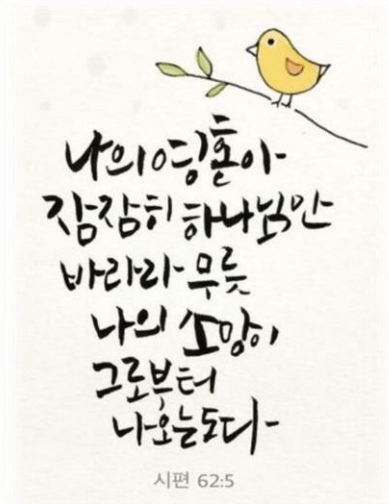 나의 영혼아
잠잠히 하나님만
바라라 무릇
나의 소망이
그로부터
나오는도다
시편 62:5